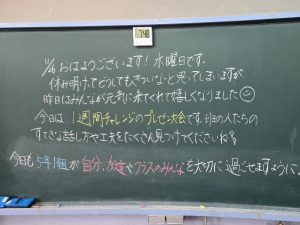 7:48
11/4 おはようございます！水曜日です。
休み明けってどうしてもきついな〜と思ってしまいますが
昨日はみんなが元気に来てくれて嬉しくなりました☺
今日は、1週間チャレンジのプレゼン大会です。班の人たちの
すてきな話し方や工夫をたくさん見つけてくださいね。
今日も5年1組が自分、友達やクラスのみんなを大切に過ごせますように。